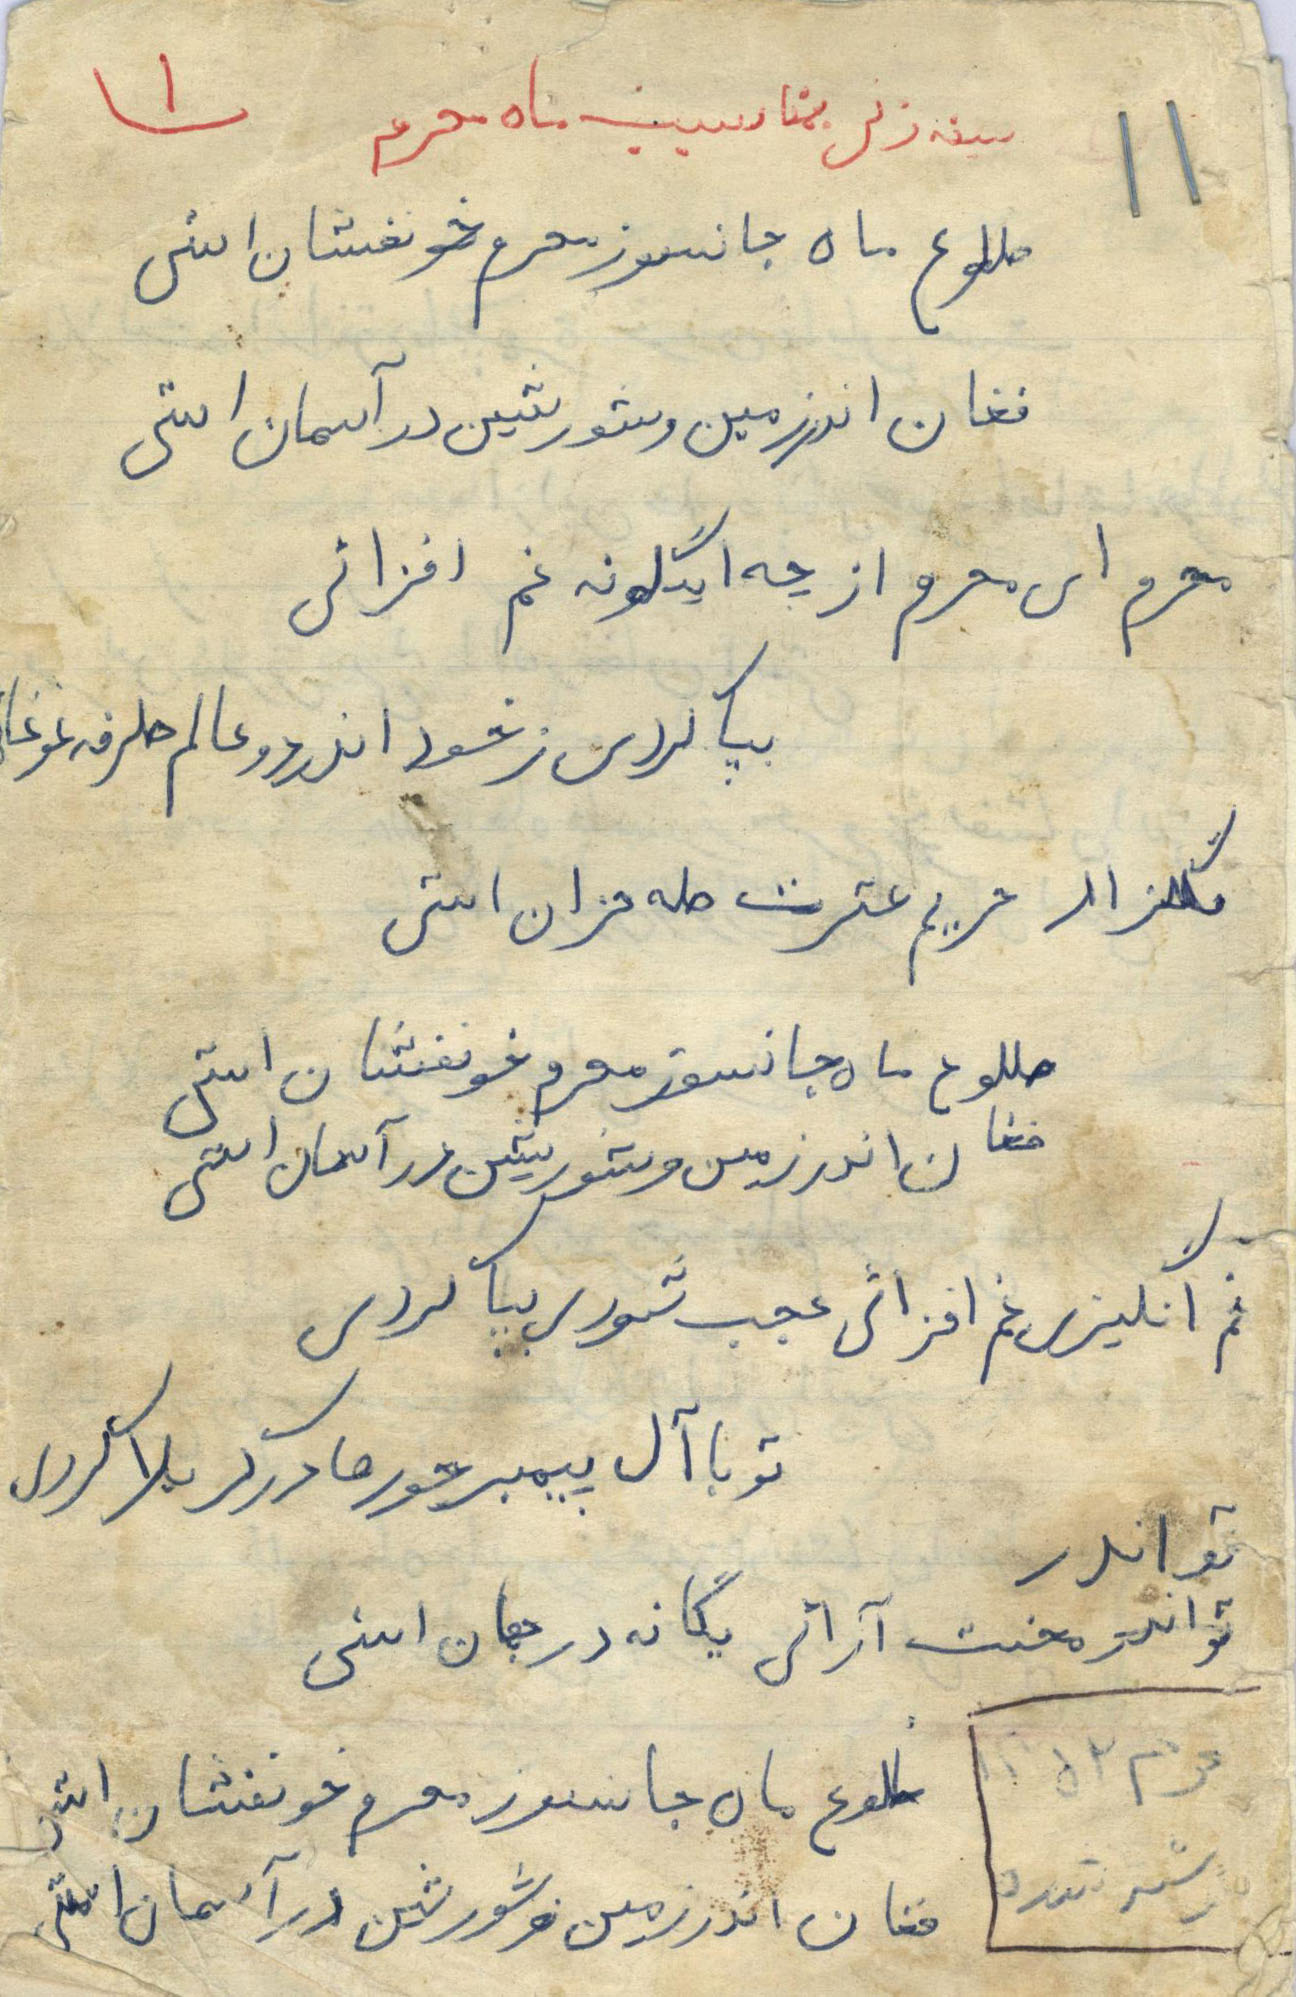 ۱۱
سینه زنی بمناسبت ماه محرم ۱
طلوع ماه جانسوز محرم خونفشان استی
فغان اندر زمین و شور شین در آسمان استی
محرم ای محرم از چه اینگونه غم افزائی
بپا کردی ز خود اندر دو عالم طرفه غوغائی
گلزار حریم عترت طه خزان استی
طلوع ماه جانسوز محرم خونفشان استی
فغان اندر زمین و شور شین در آسمان استی
غم انگیزی غم افزائی عجب شوری بپا کردی
تو با آل پیمبر جورها در کربلا کردی
تو اندر
تو اندر محنت آرائی یگانه در جهان استی
طلوع ماه جانسوز محرم خونفشان استی
فغان اندر زمین و شور شین در آسمان استی
محرم ۵۲